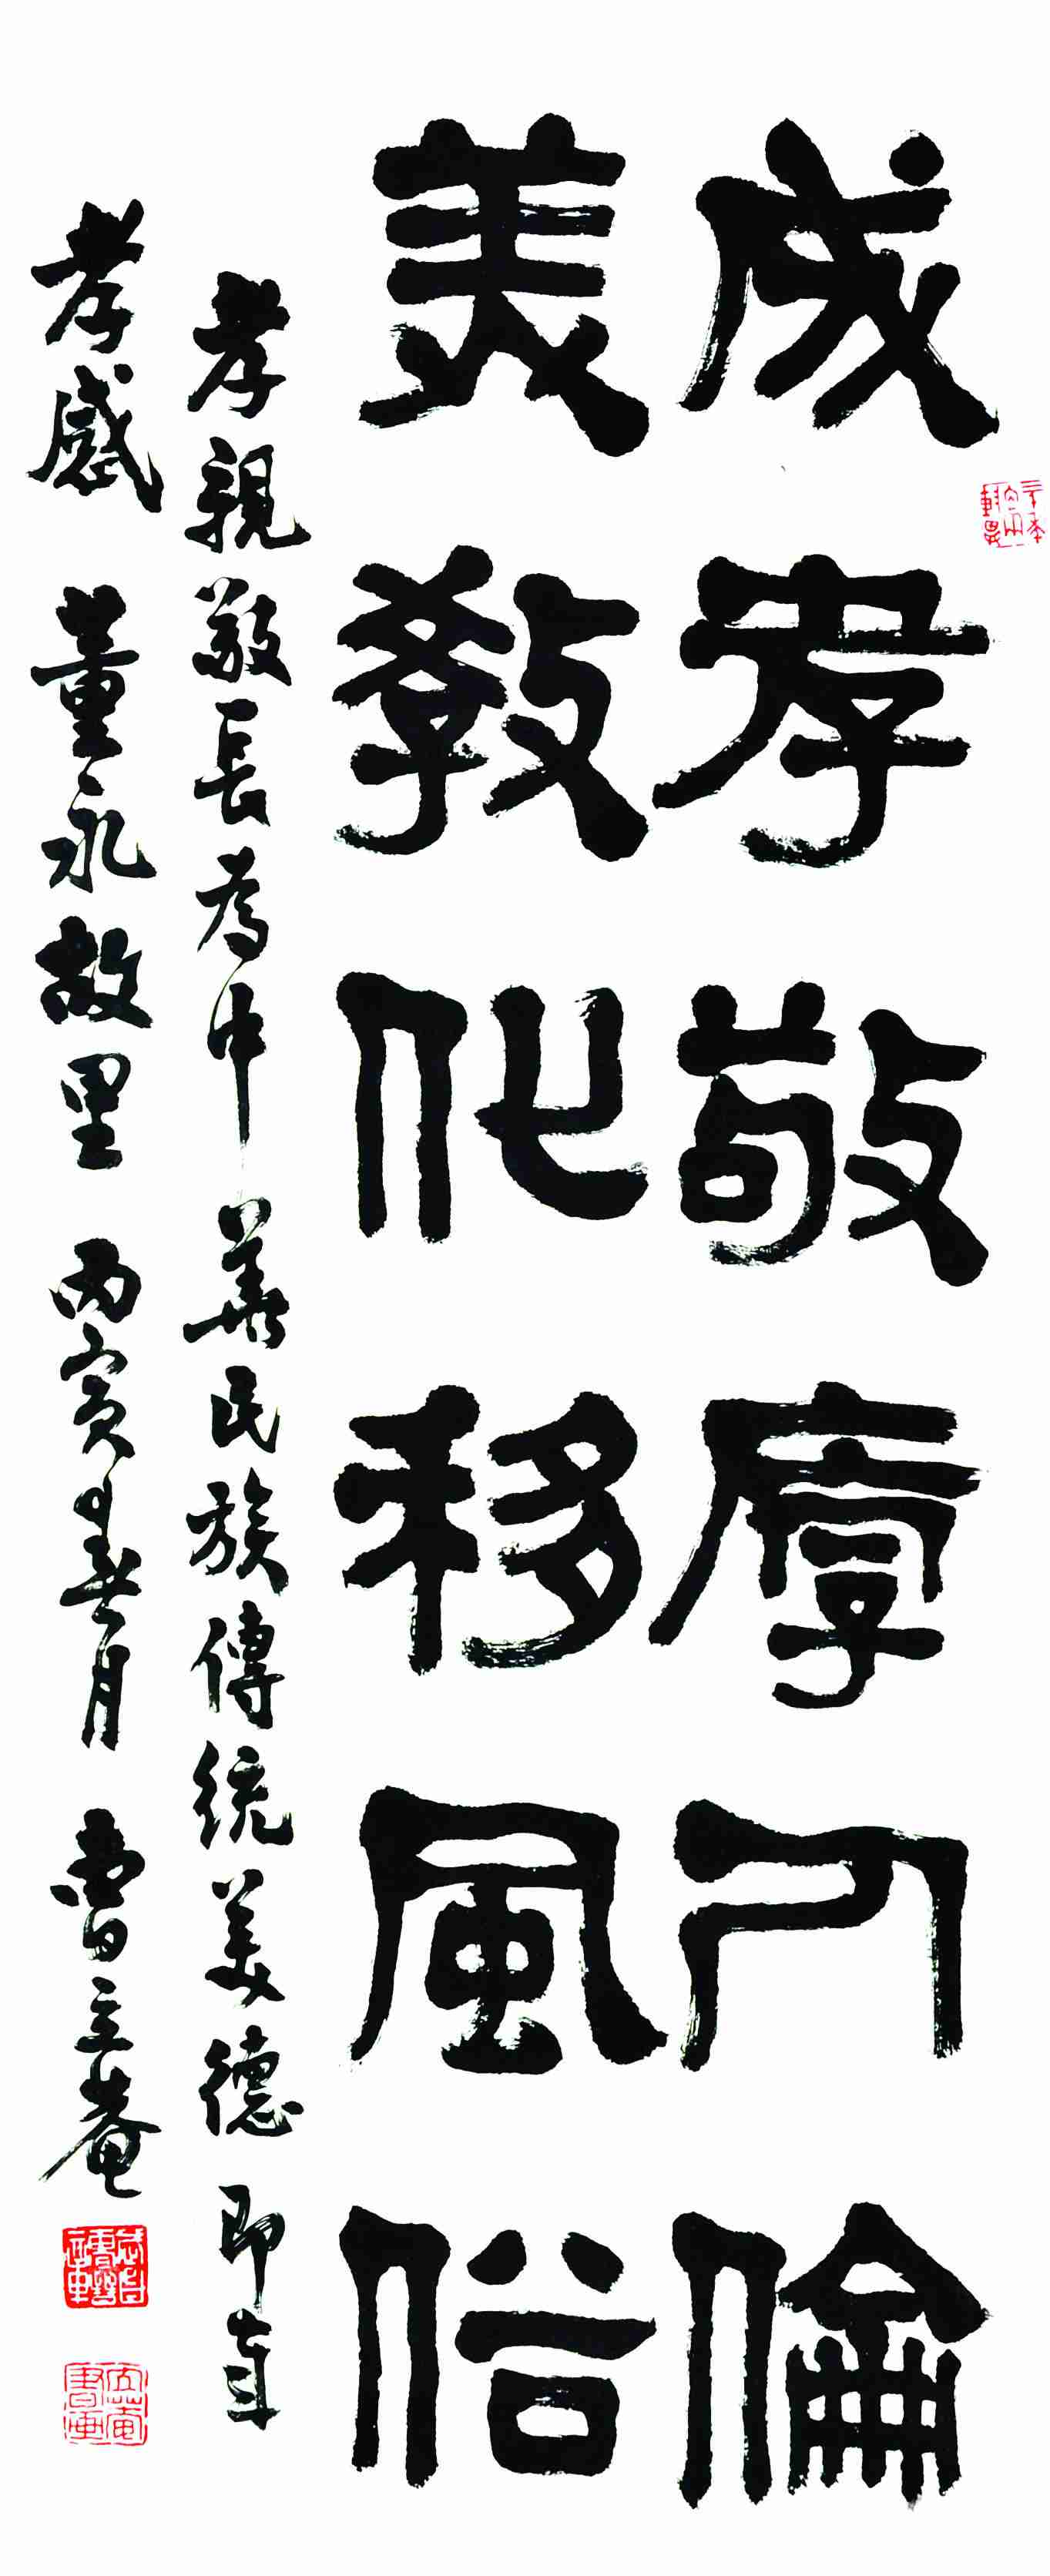 成孝敬厚人倫
美教化移風俗
孝親敬長為中華民族傳統美德即
孝感 董永故里 丙寅春月 曹立庵